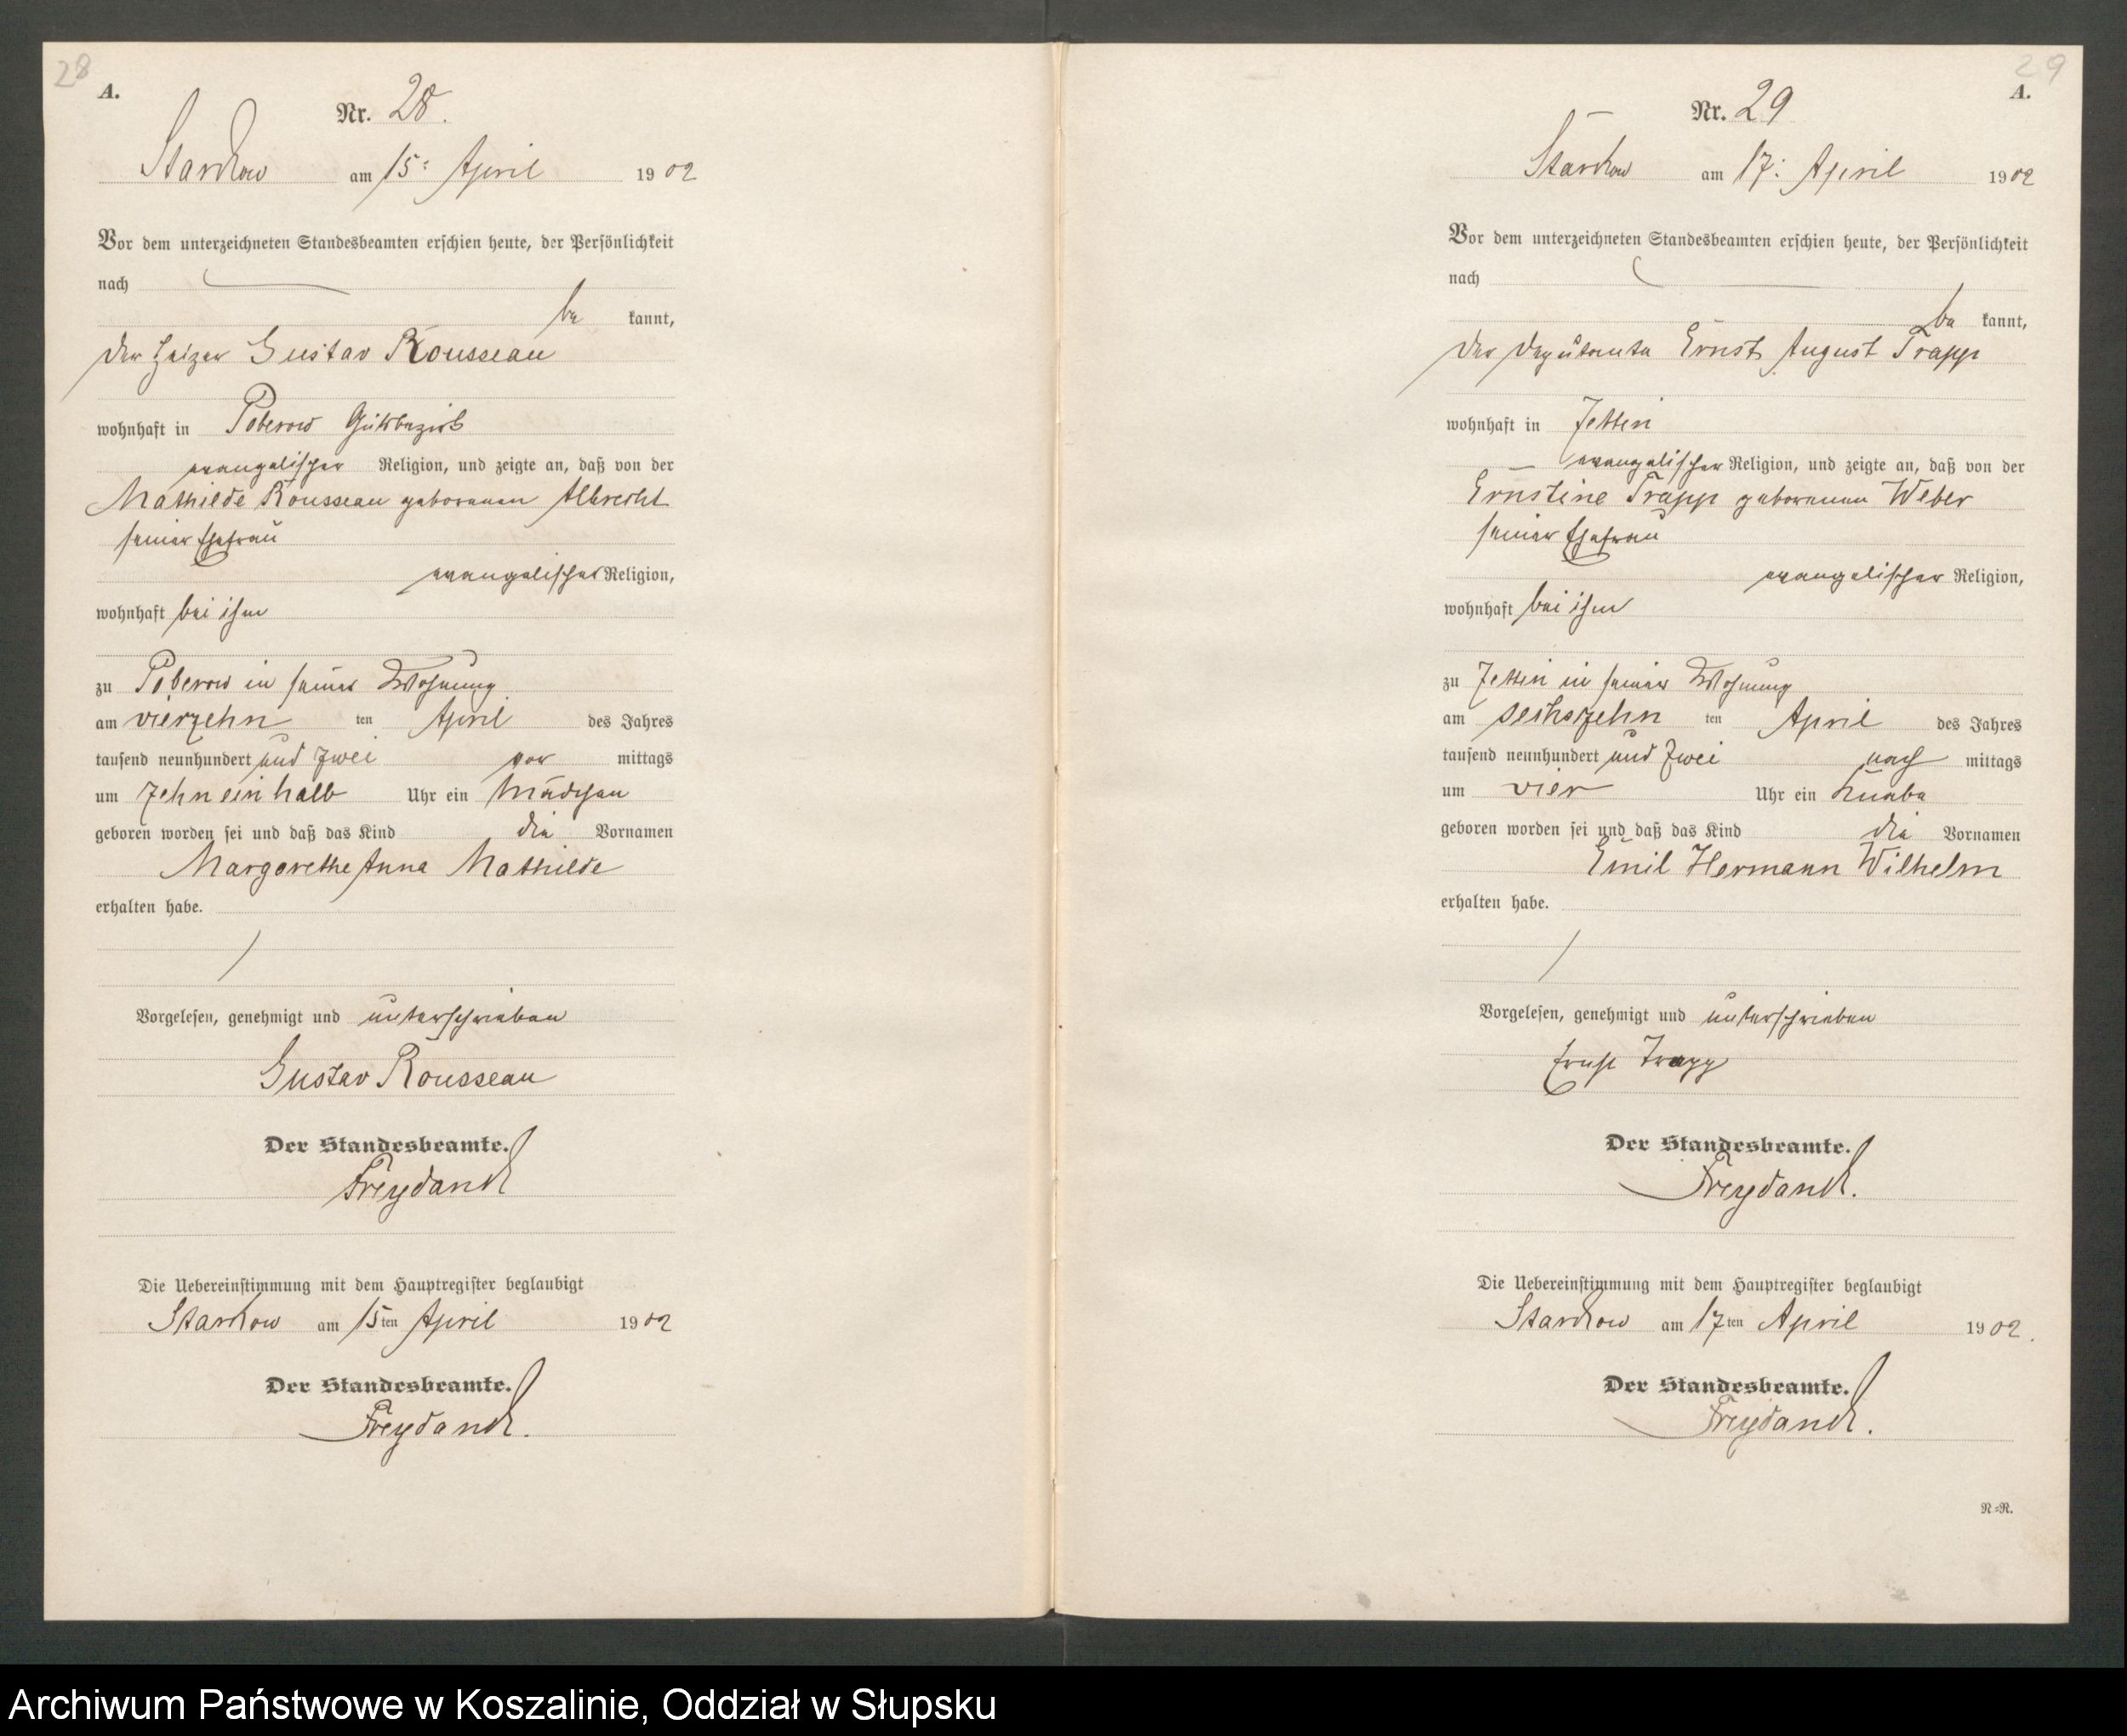 28
A.
Nr. 28.
Starkow am 15: April 1902
Vor dem unterzeichneten Standesbeamten erschien heute, der Persönlichkeit
nach
be kannt,
der Heizer Gustav Rousseau
wohnhaft in Poberow Gutsbezirk
evangelischer Religion, und zeigte an, daß von der
Mathilde Rousseau geborenen Albrecht
seiner Ehefrau
evangelischer Religion,
wohnhaft bei ihm
zu Poberow in seiner Wohnung
am vierzehn ten April des Jahres
tausend neunhundert und zwei vor mittags
um zehn ein halb Uhr ein Mädchen
geboren worden sei und daß das Kind die Vornamen
Margarethe Anna Mathilde
erhalten habe.
Vorgelesen, genehmigt und unterschrieben
Gustav Rousseau
Der Standesbeamte.
Freydanck
Die Uebereinstimmung mit dem Hauptregister beglaubigt
Starkow am 15ten April 1902
Der Standesbeamte.
Freydanck.
29
A.
Nr. 29
Starkow am 17: April 1902
Vor dem unterzeichneten Standesbeamten erschien heute, der Persönlichkeit
nach
be kannt,
der Deputante Ernst August Trapp
wohnhaft in Jettin
evangelischer Religion, und zeigte an, daß von der
Ernstine Trapp geborenen Weber
seiner Ehefrau
evangelischer Religion,
wohnhaft bei ihm
zu Jettin in seiner Wohnung
am sechszehn ten April des Jahres
tausend neunhundert und zwei nach mittags
um vier Uhr ein Knabe
geboren worden sei und daß das Kind die Vornamen
Emil Hermann Wilhelm
erhalten habe.
Vorgelesen, genehmigt und unterschrieben
Ernst Trapp
Der Standesbeamte.
Freydanck.
Die Uebereinstimmung mit dem Hauptregister beglaubigt
Starkow am 17ten April 1902.
Der Standesbeamte.
Freydanck.
N=R.
Archiwum Państwowe w Koszalinie, Oddział w Słupsku